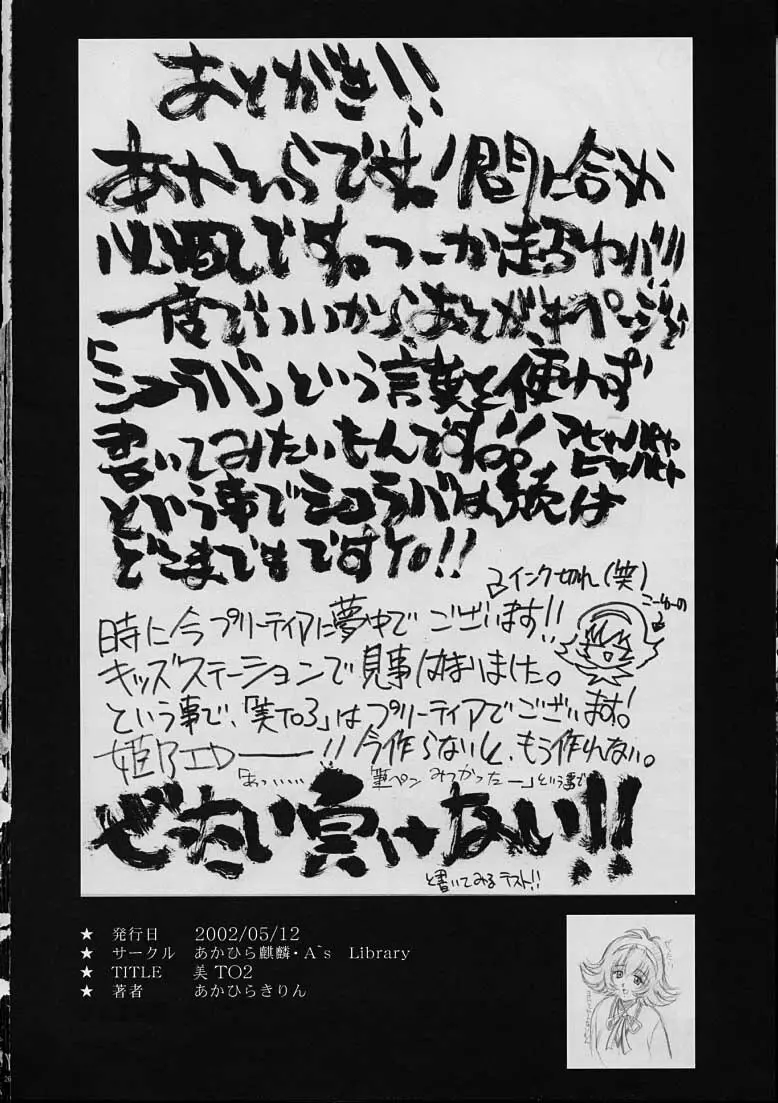 あとがき!!
あかひらです。!間に合うか
心配です。つーか超ヤバ!!
一度でいいからあとがきページで
「シュラバ」という言葉を使わず
書いてみたいもんです!!
アヒャハヒャ
ヒャハハ
という事でシュラバは続くよ
どこまでもですYO!!
インク切れ(笑)
こーゆーの
時に今プリーティアに夢中でございます!!
キッズステーションで見事はまりました。
という事で、「美TO3」はプリーティアでございます!
姫乃エロ──!!今作らないと、もう作れない。
「あっ…… 筆ペン みつかったー」という事で
ぜったい負けない!!
と書いてみるテスト!!
★ 発行日 2002/05/12
★ サークル あかひら麒麟・A`s Library
★ TITLE 美 TO2
★ 著者 あかひらきりん
26